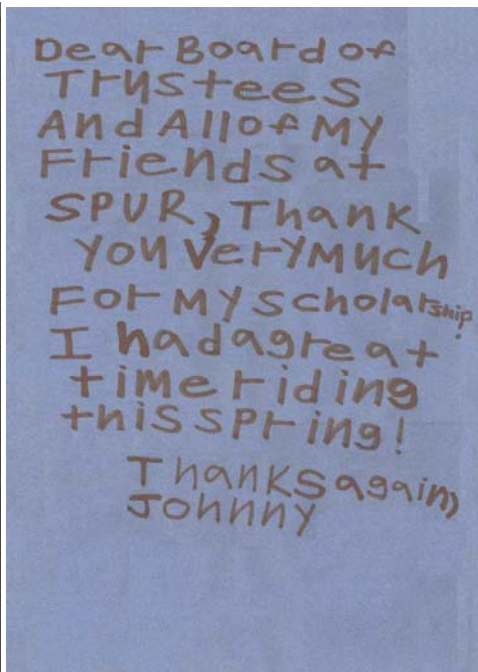 Dear Board of
Trustees
And All of My
Friends at
SPUR, Thank
you very Much
For My scholarship!
I had a great
time riding
this spring!
Thanks again,
Johnny